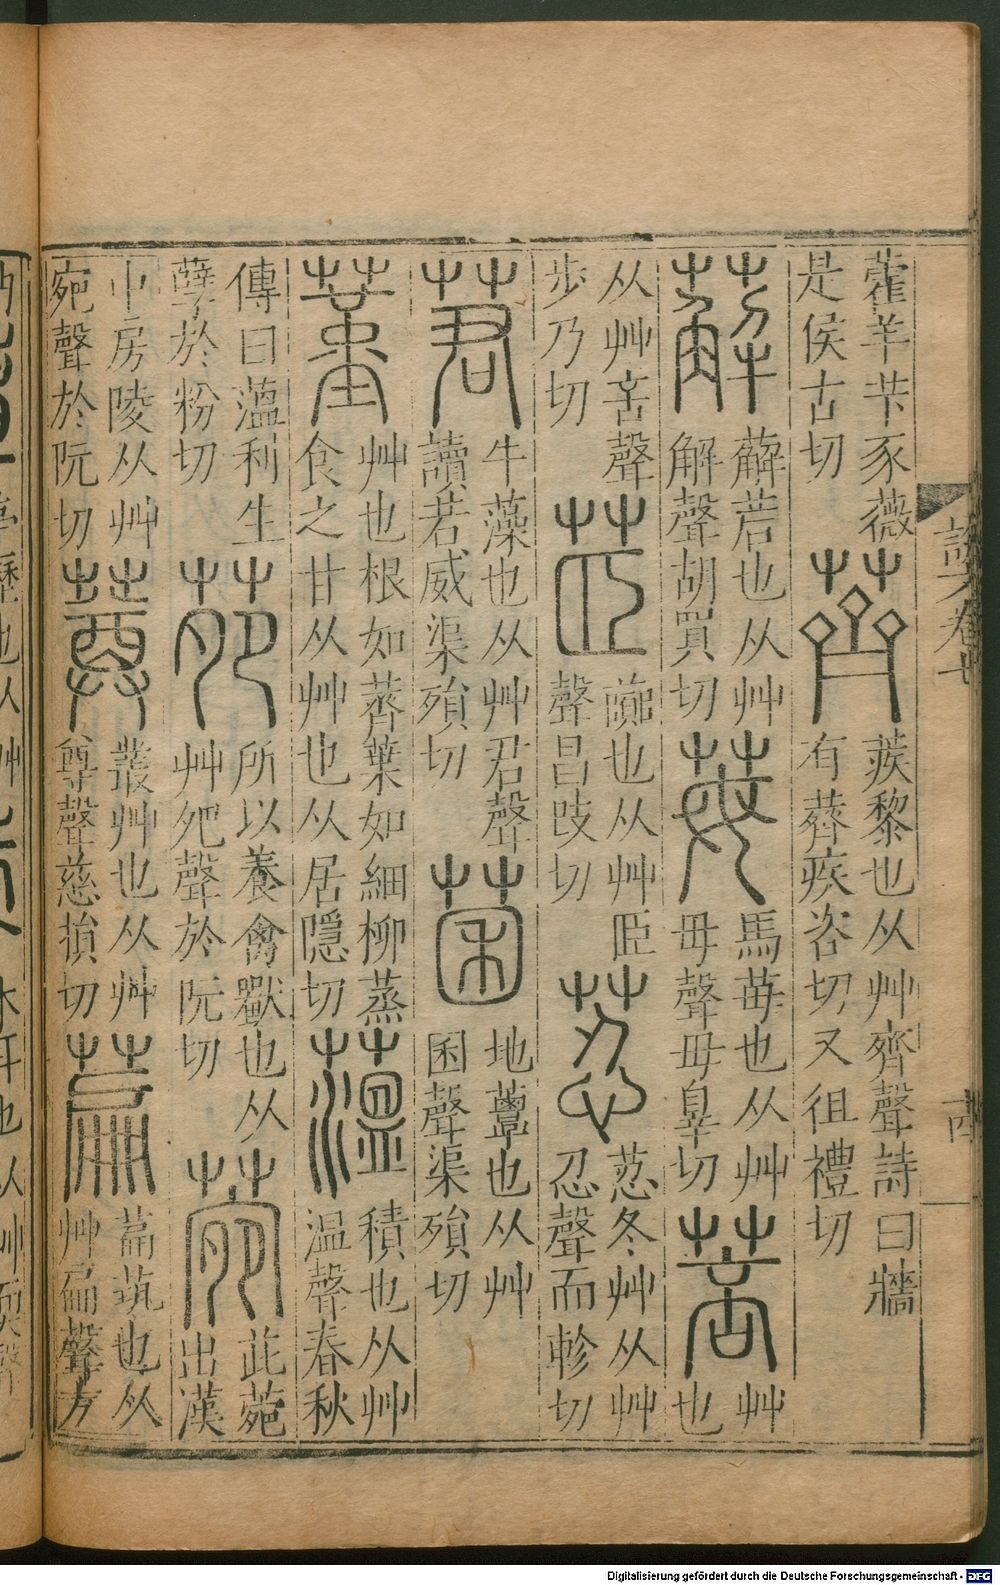 藿羊苄豕薇
是侯古切
薺
蒺黎也从艸齊聲詩曰牆
有薺疾咨切又徂禮切
薢
薢茩也从艸
解聲胡買切
莓
馬莓也从艸
毋聲毋辠切
菩
艸
也
从艸咅聲
步乃切
茝
也从艸𦣞
聲昌改切
荵
荵冬艸从艸
忍聲而軫切
莙
牛藻也从艸君聲
讀若威渠殞切
菌
地蕈也从艸
囷聲渠殞切
堇
艸也根如薺葉如細柳蒸
食之甘从艸也从居隱切
薀
積也从艸
温聲春秋
傳曰薀利生
孽於粉切
苑
所以養禽獸也从
艸夗聲於阮切
菀
茈菀
出漢
中房陵从艸
宛聲於阮切
蕁
叢艸也从艸
尊聲慈損切
萹
萹茿也从
艸扁聲方
Digitalisierung gefördert durch die Deutsche Forschungsgemeinschaft - DFG